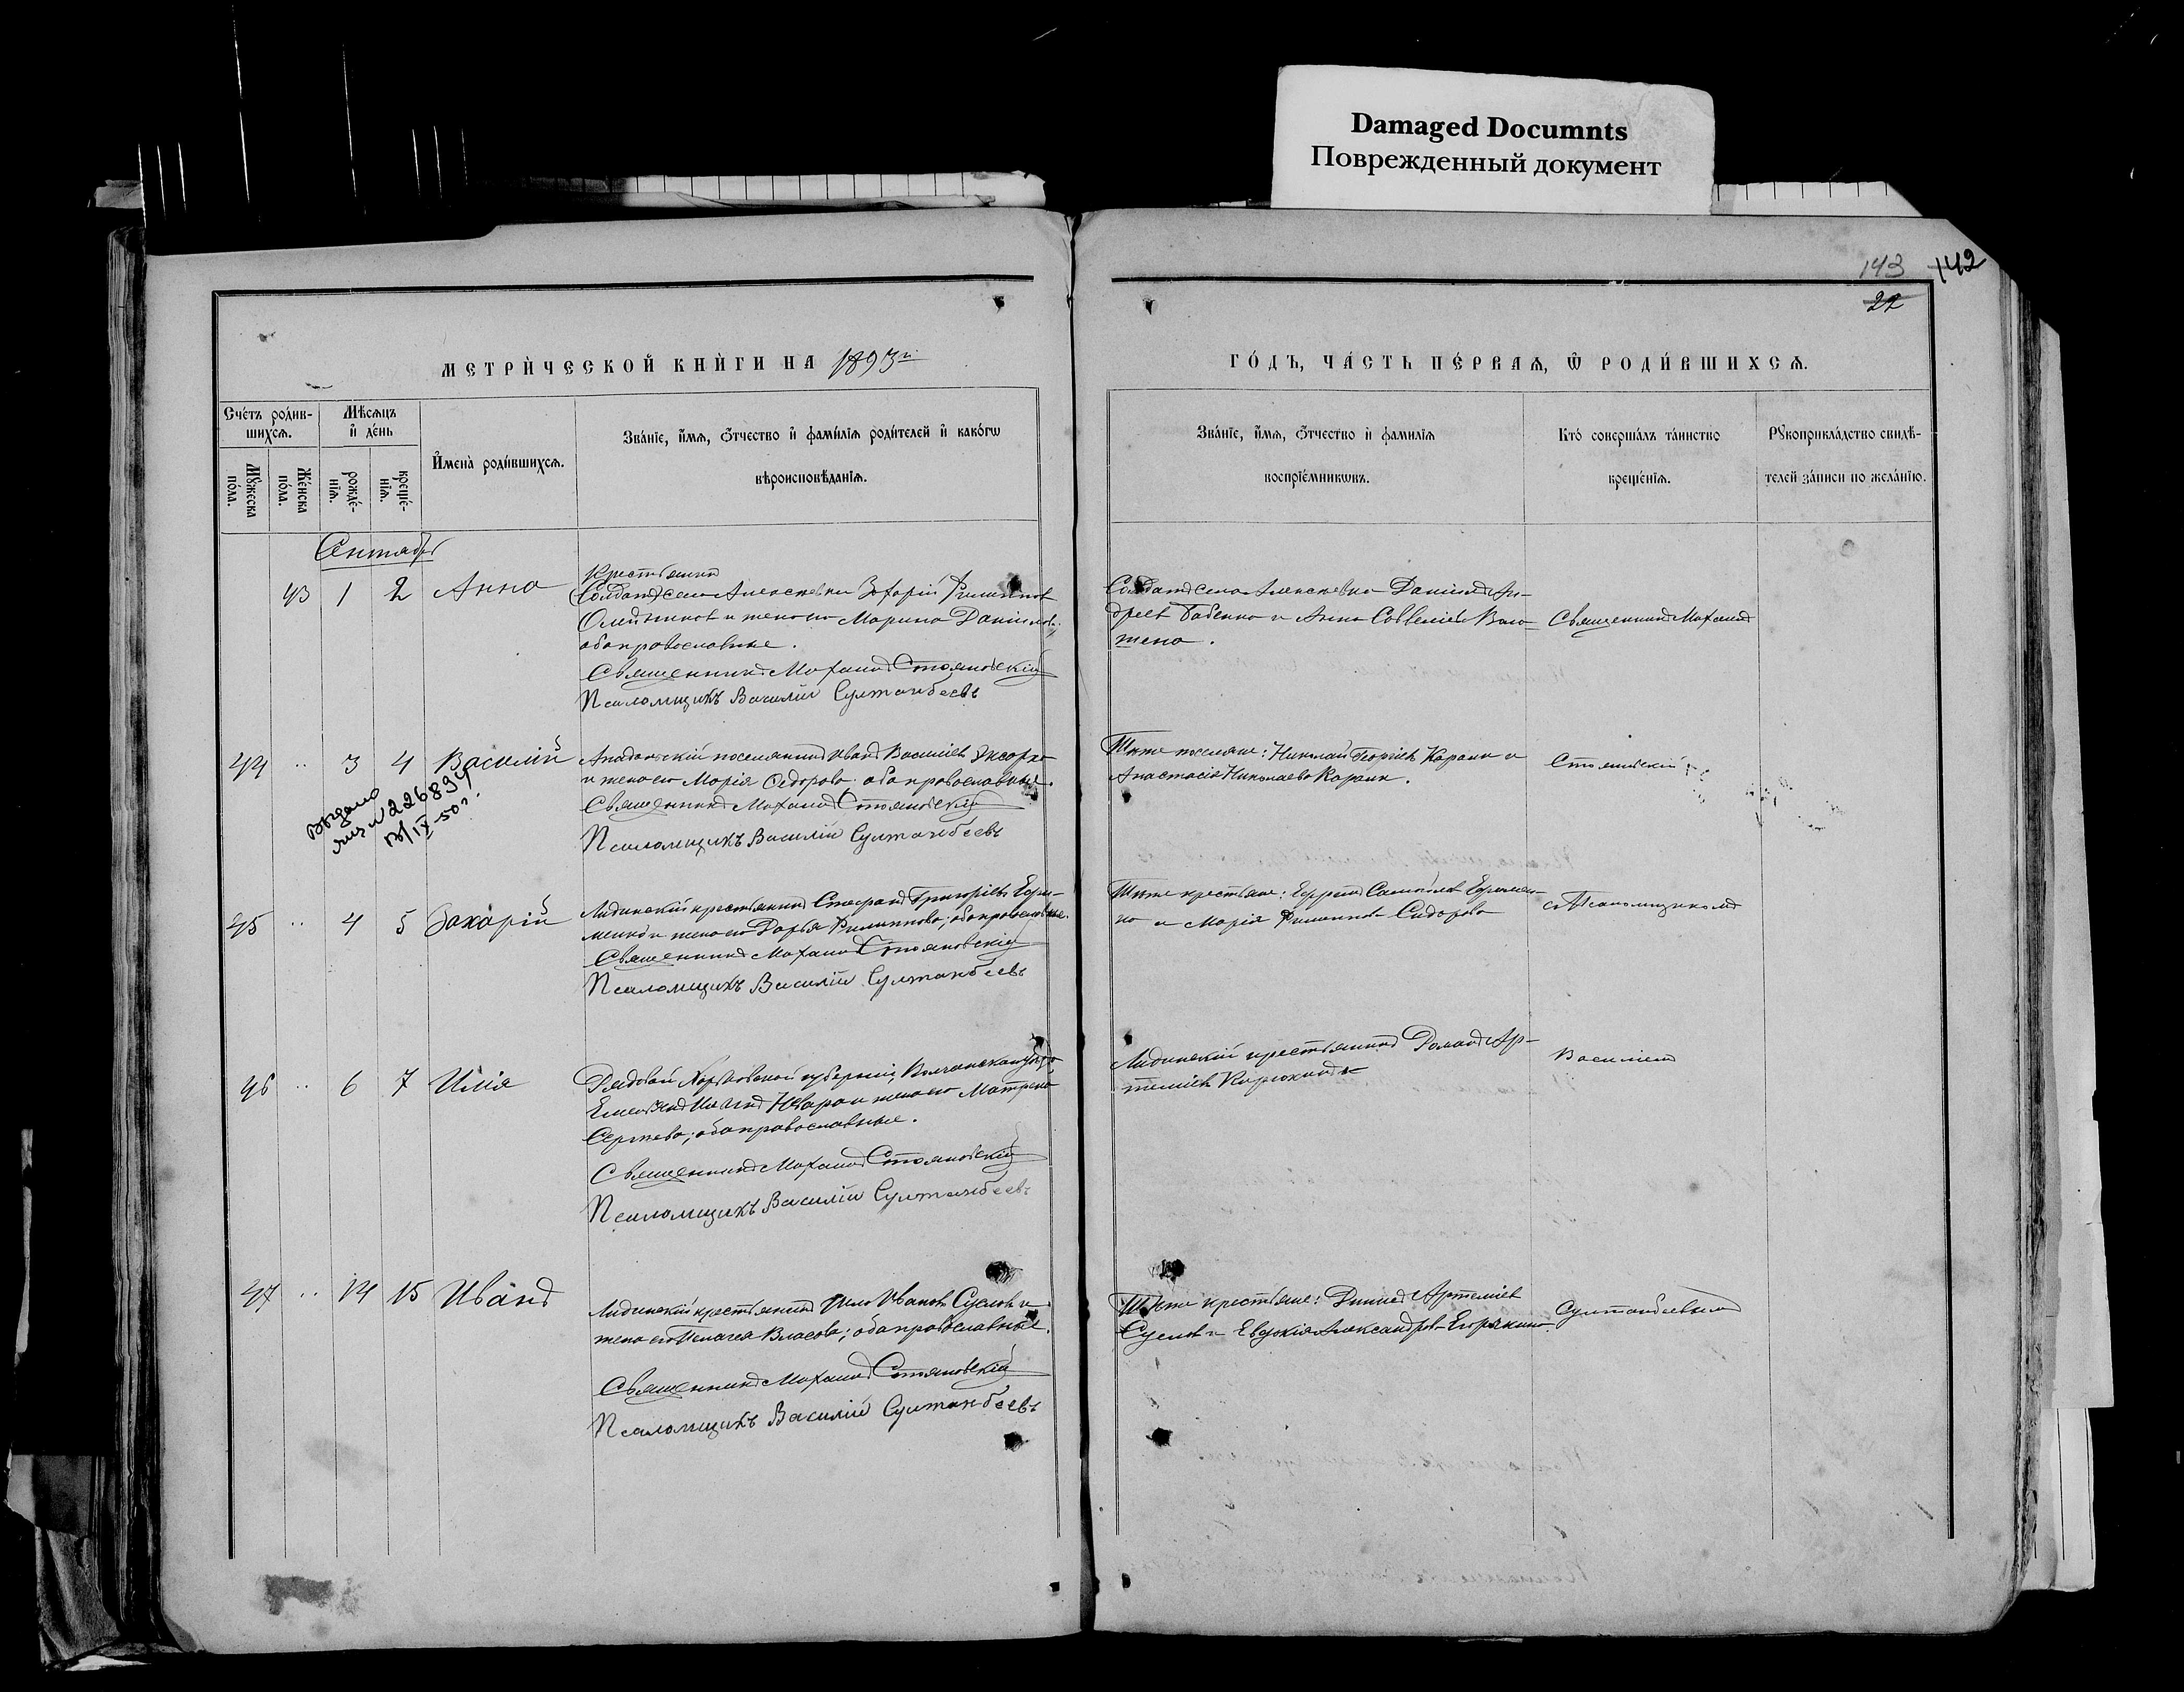 Damaged Documnts
Поврежденный документ
143 142
22
МЕТРИ́ЧЕСКОЙ КНИ́ГИ НА 1893й
ГО́ДЪ, ЧА́СТЬ ПЕ́РВАЯ, Ѿ РОДИ́ВШИХСЯ.
Сче́тъ роди́в-
шихсѧ.
Мꙋ́жеска
по́ла.
Же́нска
по́ла.
Мѣ́сѧцъ
и҆ де́нь
рожде́-
нїѧ.
креще́-
нїѧ.
И҆мена̀ роди́вшихсѧ.
Зва́нїе, и҆́мѧ, ѻ҆́тчество и҆ фами́лїѧ роди́телей и҆ како́гѡ
вѣроисповѣ́данїѧ.
Зва́нїе, и҆́мѧ, ѻ҆́тчество и҆ фами́лїѧ
воспрїе́мникѡвъ.
Кто̀ соверша́лъ та́инство
креще́нїѧ.
Рꙋкоприкла́дство свидѣ́-
телей за́писи по жела́нїю.
Сентябрь
43 1 2 Анна
Крестьянин
Солдат села Алексеевки Захарій Филиппов
Олейников и жена его Марина Данилова,
оба православные.
Священник Михаил Стояновскій
Псаломщикъ Василій Султанбеевъ
Солдат села Алексеевки Даніил Ан-
дреев Бабенко и Анна Савельева
жена.
Священник Михаил
44 " 3 4 Василій
Выдано
№ 226894
13/IX-50г.
поселянин Иван Васильев
и жена его Марія Федорова оба православные.
Священник Михаил Стояновскій
Псаломщикъ Василій Султанбеевъ
Тѣже поселяне: Николай Георгіев Караик и
Анастасія Николаева Караик.
Стояновскій
45 " 4 5 Захарій
Лидинскій крестьянин Стефан Григорьев Ефри-
менко и жена его Дарья Филиппова; оба православные.
Священник Михаил Стояновскій
Псаломщикъ Василій Султанбеевъ
Тѣже крестьяне: Ефрем Самойлов Ефремен-
ко и Марія Филиппова Сидорова
с Псаломщиком
46 " 6 7 Илія
Рядовой Харьковской губерніи, Волчанскаго уѣзда
Емельян Иванов и жена его Матрена
Сергѣева; оба православные.
Священник Михаил Стояновскій
Псаломщикъ Василій Султанбеевъ
Лидинскій крестьянин Роман Ар-
теміев Кирюхин
Василіем
47 " 14 15 Иван
Лидинскій крестьянин Илья Иванов Суслов и
жена его Пелагея Власова; оба православные.
Священник Михаил Стояновскій
Псаломщикъ Василій Султанбеевъ
Тѣже крестьяне: Артеміев
Суслов и Евдокія Александрова Егорякина.
Султанбеевым